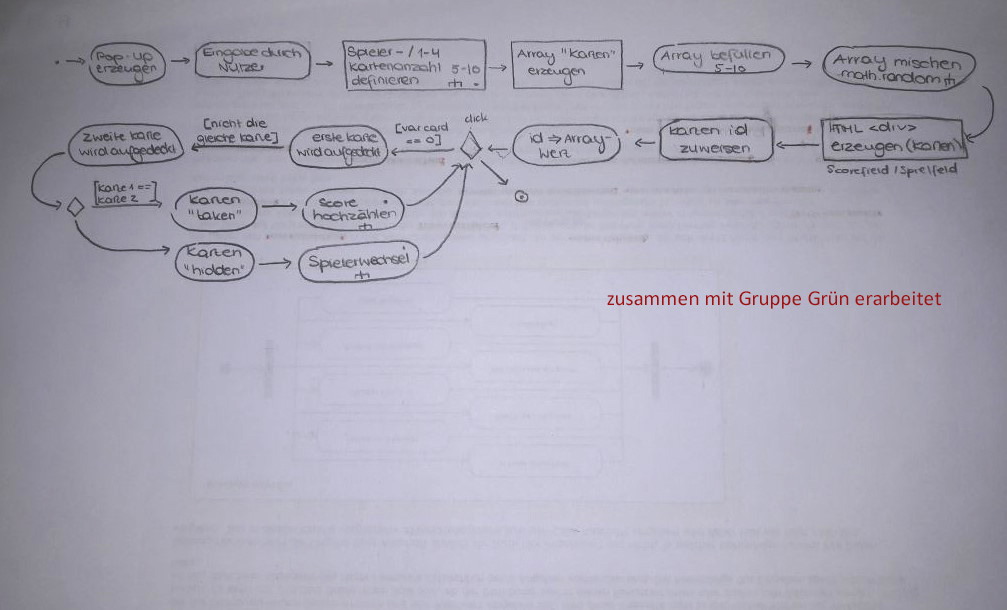 Pop-Up
erzeugen
Eingabe durch
Nutzer
Spieler- / 1-4
Kartenanzahl 5-10
definieren
Array "Karten"
erzeugen
Array befüllen
5-10
Array mischen
math.random
HTML <div>
erzeugen (Karten)
Scorefield / Spielfeld
Karten id
zuweisen
id => Array-
Wert
click
[var card
== 0]
erste Karte
wird aufgedeckt
[nicht die
gleiche Karte]
zweite Karte
wird aufgedeckt
[Karte 1 ==
Karte 2
Karten
"taken"
Score
hochzählen
Karten
"hidden"
Spielerwechsel
zusammen mit Gruppe Grün erarbeitet